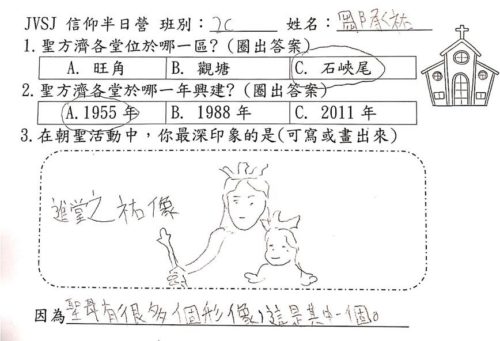 JVSJ 信仰半日營 班別：2C 姓名：鄒承祐
1. 聖方濟各堂位於哪一區？(圈出答案)
A. 旺角 B. 觀塘 C. 石峽尾
2. 聖方濟各堂於哪一年興建？(圈出答案)
A. 1955 年 B. 1988 年 C. 2011 年
3. 在朝聖活動中，你最深印象的是(可寫或畫出來)
進堂之祐像
因為聖母有很多個形像，這是其中一個。